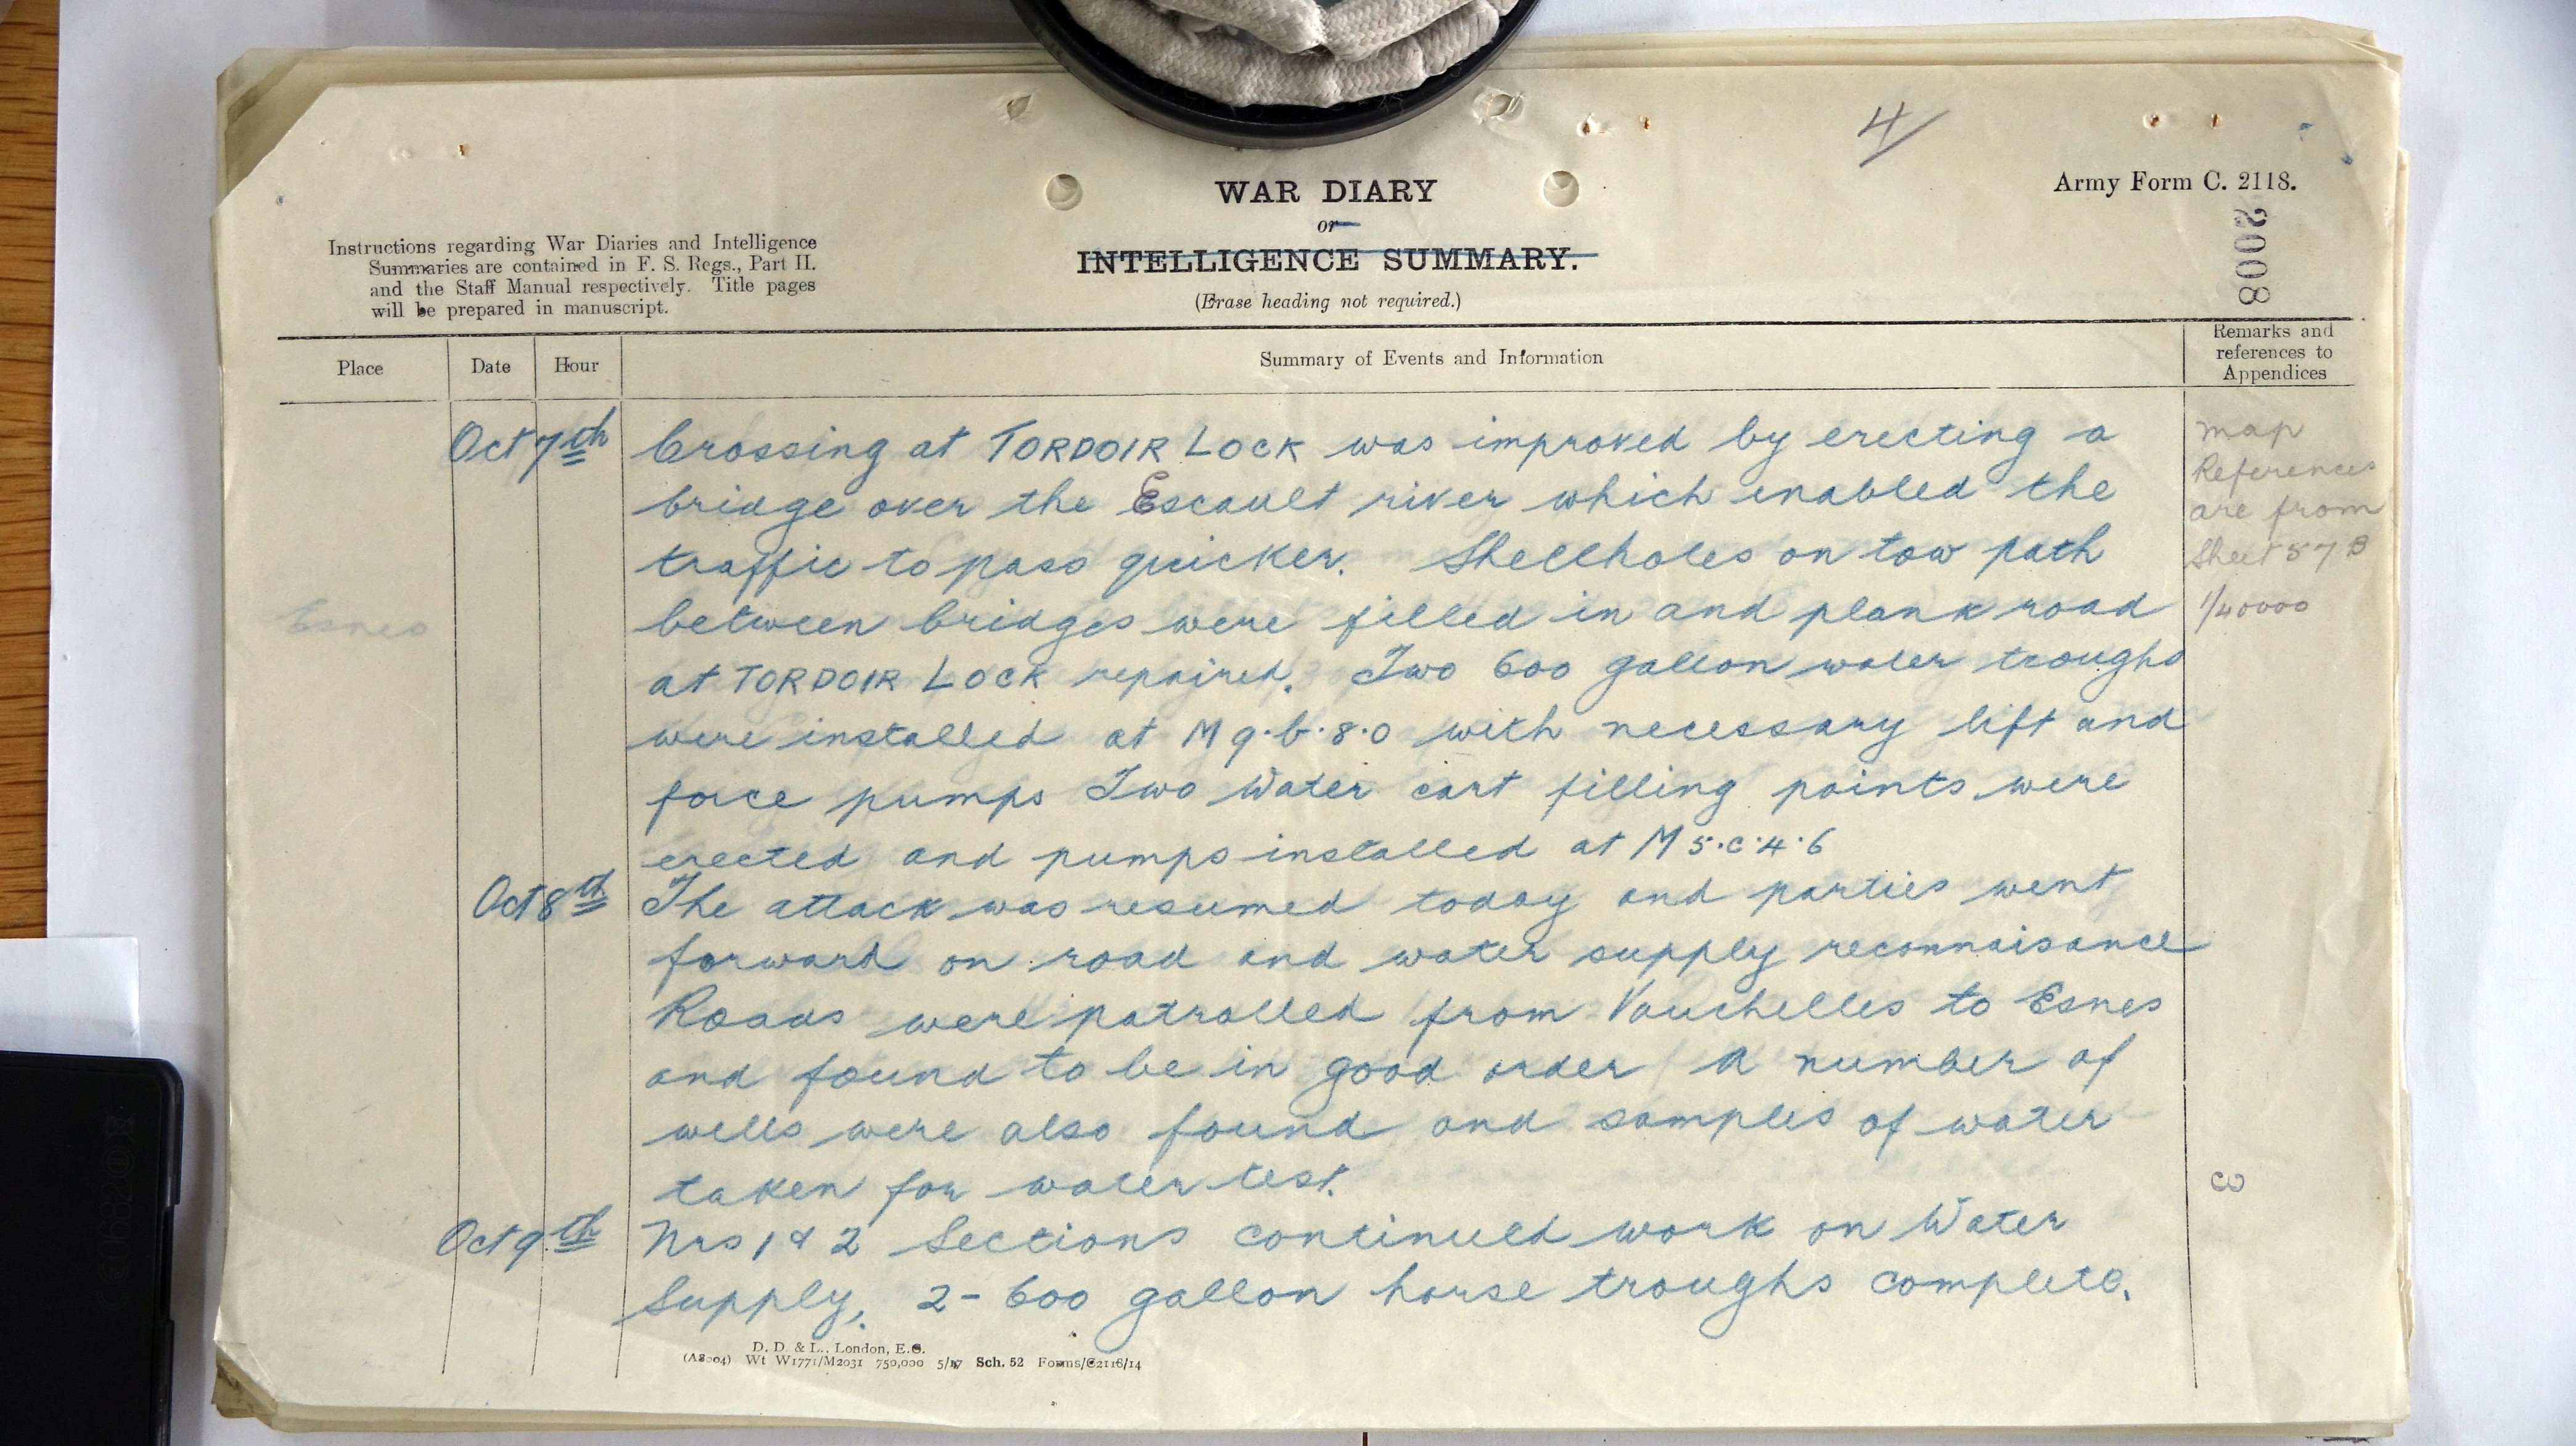 4
Army Form C. 2118.
2008
WAR DIARY
or
INTELLIGENCE SUMMARY.
(Erase heading not required.)
Instructions regarding War Diaries and Intelligence
Summaries are contained in F. S. Regs., Part II.
and the Staff Manual respectively. Title pages
will be prepared in manuscript.
Place Date Hour Summary of Events and Information Remarks and
references to
Appendices
Oct 7th Crossing at TORDOIR LOCK was improved by erecting a
bridge over the Escault river which enabled the
traffic to pass quicker. Shellholes on tow path
between bridges were filled in and plank road
at TORDOIR LOCK repaired. Two 600 gallon water troughs
were installed at M 9.b.8.0 with necessary lift and
force pumps Two Water cart filling points were
erected and pumps installed at M 5.c.4.6
map
References
are from
Sheet 57 B
1/40000
Esnes
Oct 8th The attack was resumed today and parties went
forward on road and water supply reconnaisance
Roads were patrolled from Vauchelles to Esnes
and found to be in good order A number of
wells were also found and samples of water
taken for water test.
3
Oct 9th Nos 1 & 2 Sections continued work on Water
Supply. 2-600 gallon horse troughs complete.
D. D. & L., London, E.C.
(A8004) Wt W1771/M2031 750,000 5/17 Sch. 52 Forms/C2118/14